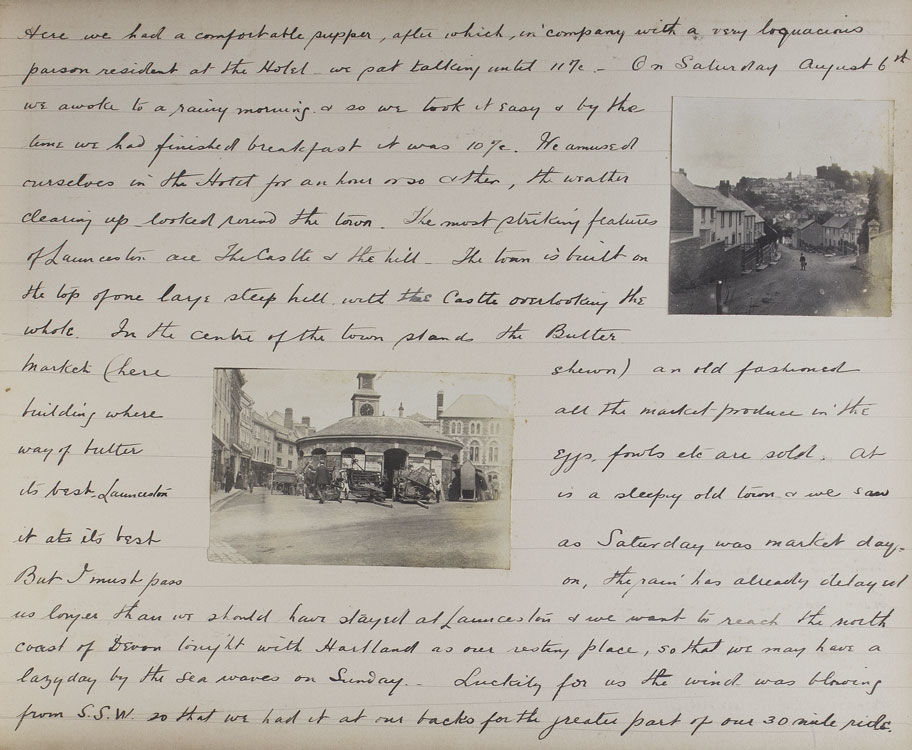 Here we had a comfortable supper, after which, in company with a very loquacious
parson resident at the Hotel we sat talking until 11 o/c. - On Saturday August 6th
we awoke to a rainy morning & so we took it easy & by the
time we had finished breakfast it was 10 o/c. We amused
ourselves in the Hotel for an hour or so & then, the weather
clearing up looked round the town. The most striking features
of Launceston are The Castle & the hill. The town is built on
the top of one large steep hill with the Castle overlooking the
whole. In the centre of the town stands the Butter
Market (here shewn) an old fashioned
building where all the market produce in the
way of butter Eggs, fowls etc are sold. At
its best Launceston is a sleepy old town & we saw
it at its best as Saturday was market day.
But I must pass on, the rain has already delayed
us longer than we should have stayed at Launceston & we want to reach the north
coast of Devon tonight with Hartland as our resting place, so that we may have a
lazy day by the sea waves on Sunday. - Luckily for us the wind was blowing
from S.S.W. so that we had it at our backs for the greater part of our 30 mile ride.